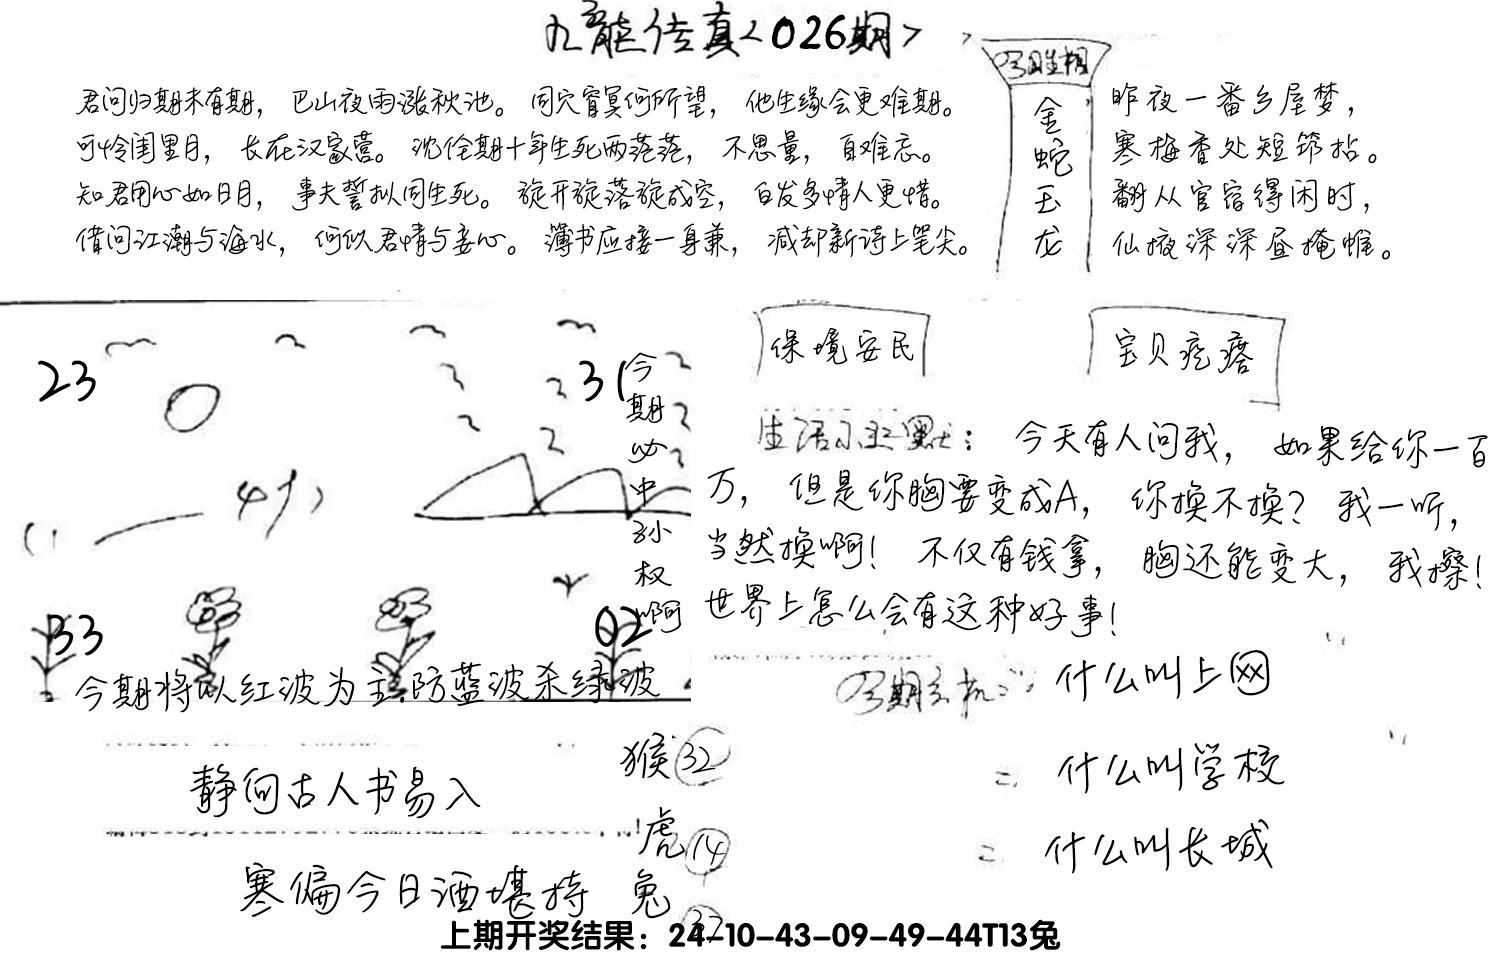 九龙传真<026期>
君问归期未有期，巴山夜雨涨秋池。同穴窅冥何所望，他生缘会更难期。
可怜闺里月，长在汉家营。沈佺期十年生死两茫茫，不思量，自难忘。
知君用心如日月，事夫誓拟同生死。旋开旋落旋成空，白发多情人更惜。
借问江潮与海水，何似君情与妾心。薄书应接一身兼，减却新诗上笔尖。
金蛇玉龙
昨夜一番乡屋梦，
寒梅香处短筇拈。
翻从官宿得闲时，
仙掖深深昼掩帷。
23
31
33
02
今期必中孙权啊
今期将以红波为主防蓝波杀绿波
保境安民
宝贝疙瘩
生活小幽默：今天有人问我，如果给你一百
万，但是你胸要变成A，你换不换？我一听，
当然换啊！不仅有钱拿，胸还能变大，我擦！
世界上怎么会有这种好事！
今期玄机 什么叫上网
= 什么叫学校
= 什么叫长城
静向古人书易入
寒偏今日酒堪持
猴32
虎14
兔37
上期开奖结果：24-10-43-09-49-44T13兔